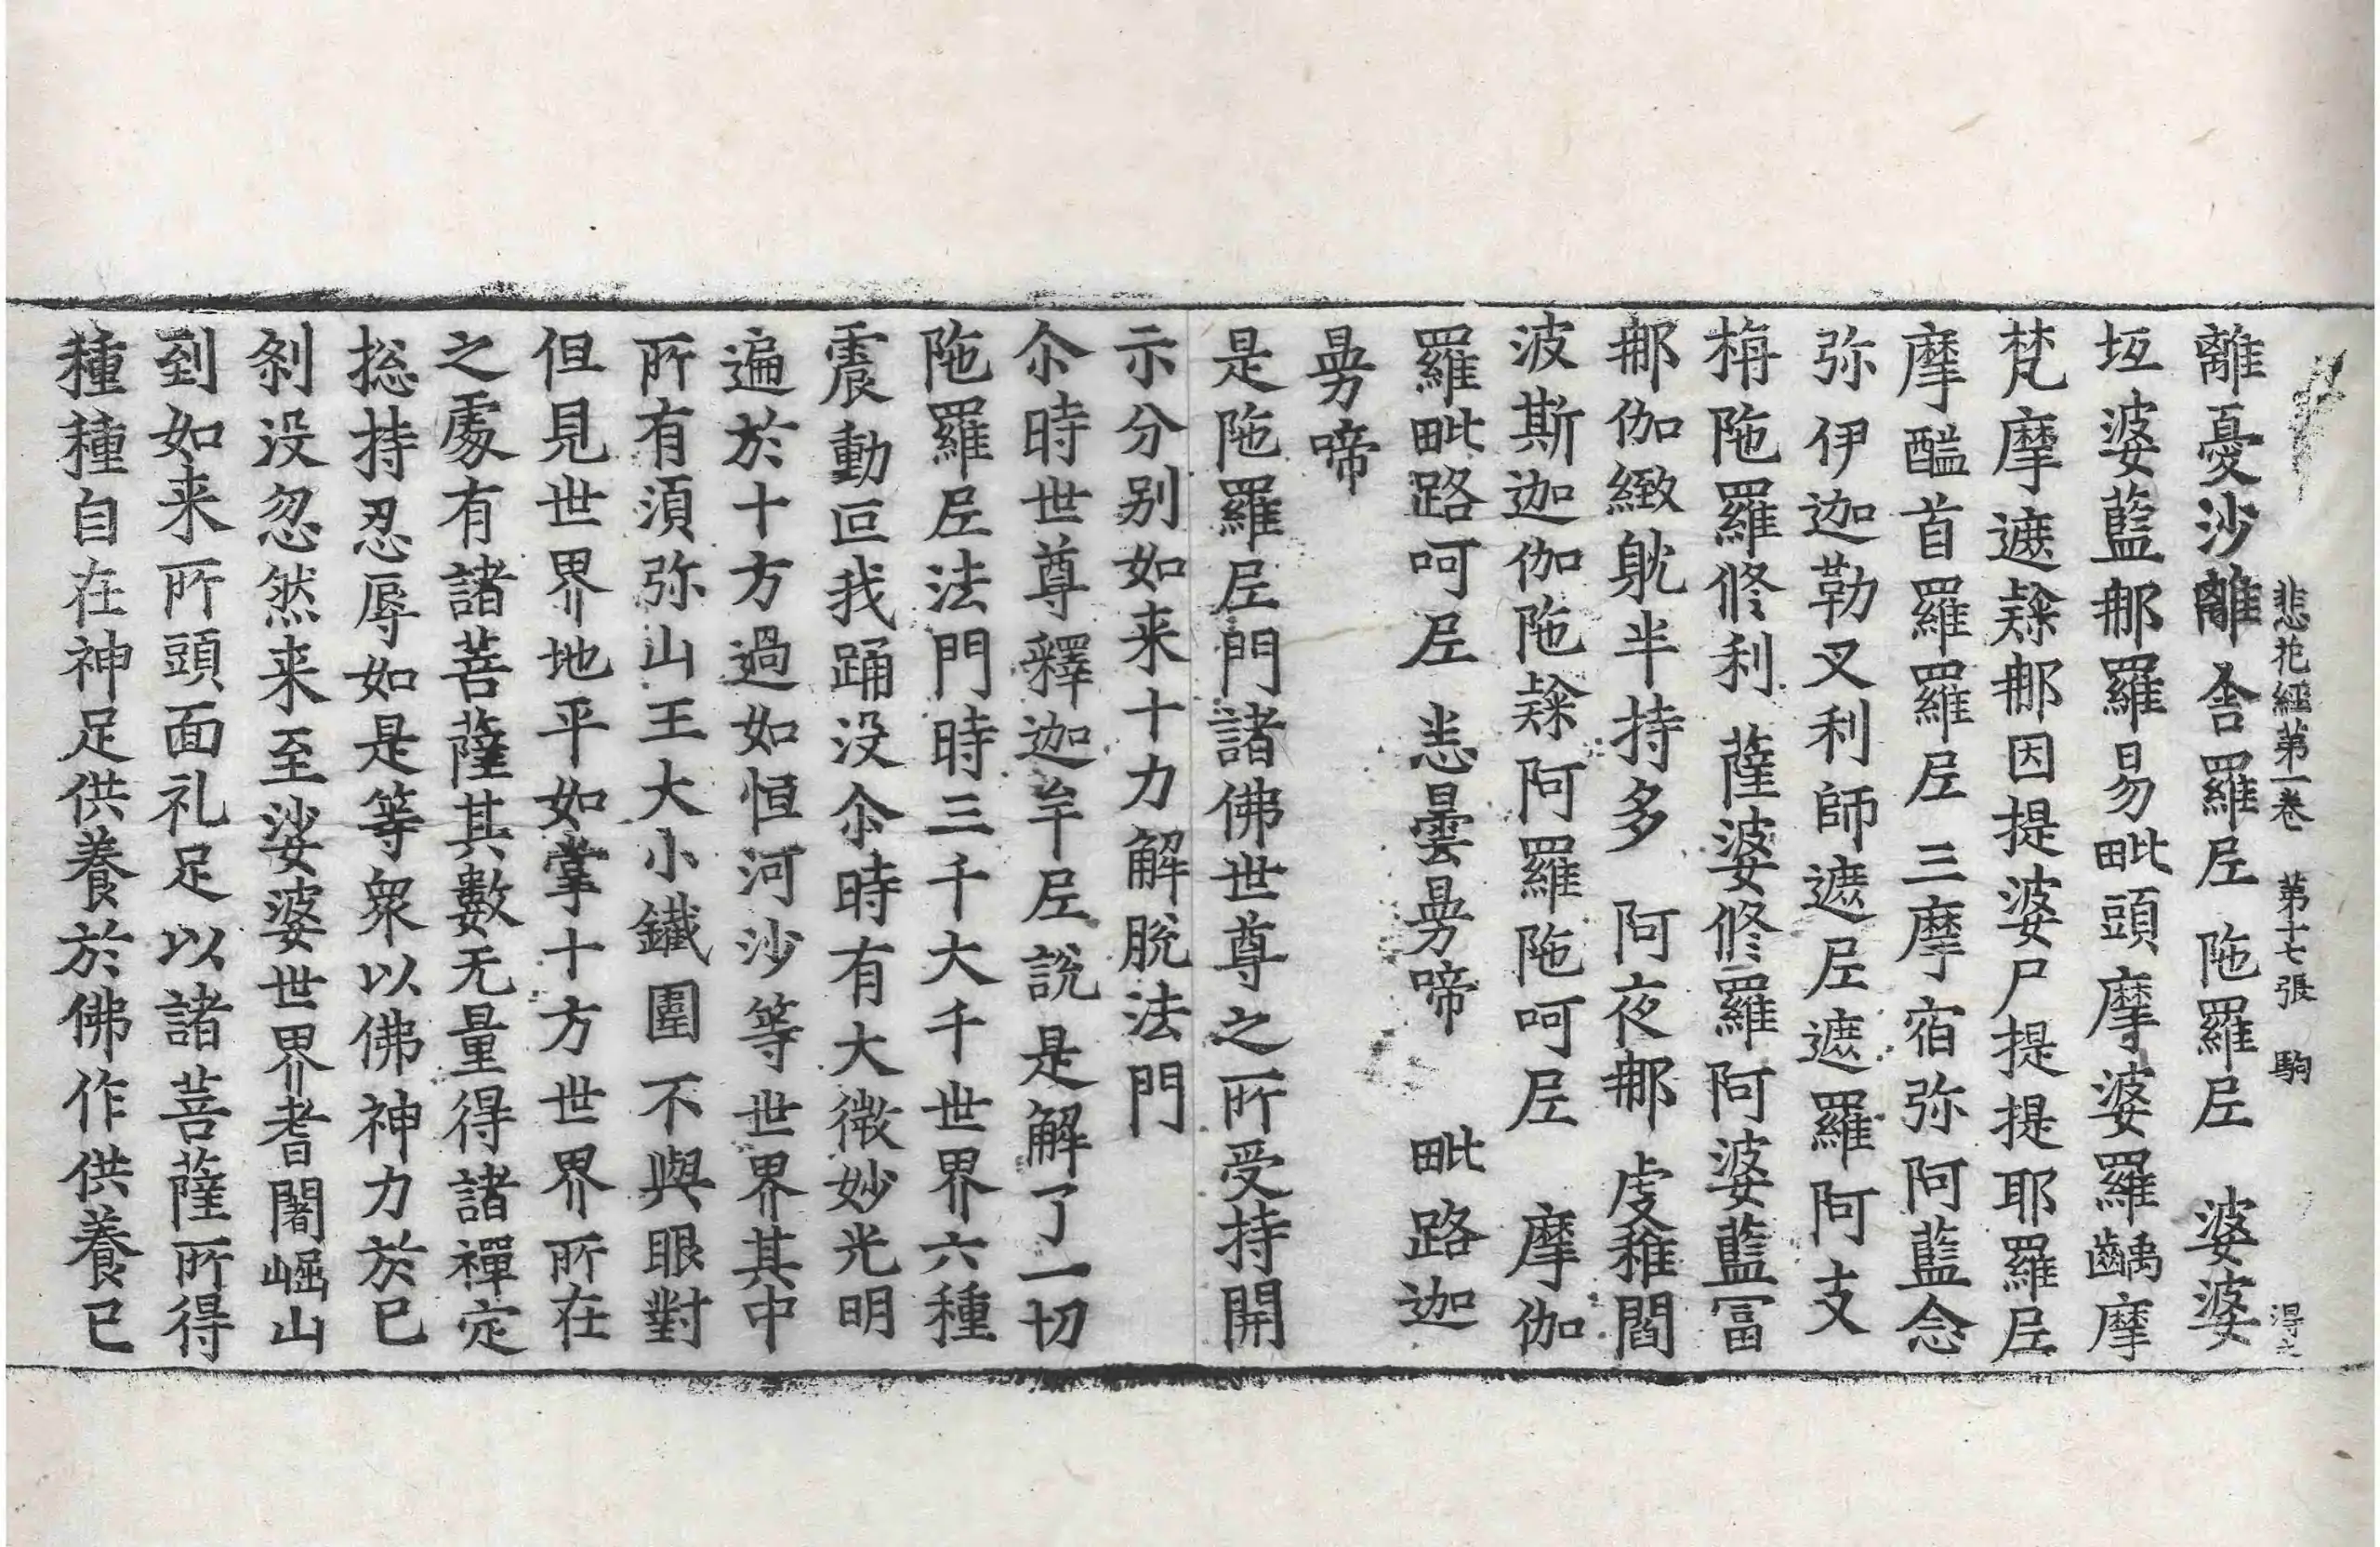 悲花經第一卷　第十七張　駒　得之
離憂沙離舍羅𡰱　陁羅𡰱　婆婆
垣婆藍那羅易毗頭摩婆羅齲摩
梵摩遮𥠖那因提婆尸提提耶羅𡰱
摩醯首羅羅𡰱三摩宿弥阿藍念
弥伊迦勒叉利師遮𡰱遮羅阿支
栴陁羅修利　薩婆修羅阿婆藍冨
那伽緻躭半持多　阿夜那虔稚閻
波斯迦伽陁𥠖阿羅陁呵𡰱　摩伽
羅毗路呵𡰱　悉曇㬅啼　毗路迦
㬅啼
是陁羅𡰱門諸佛世尊之所受持開
示分别如来十力解脫法門
尒時世尊釋迦牟𡰱說是解了一切
陁羅𡰱法門時三千大千世界六種
震動叵我踊没尒時有大微妙光明
遍於十方過如恒河沙等世界其中
所有須弥山王大小鐵圍不與眼對
但見世界地平如掌十方世界所在
之處有諸菩薩其數无量得諸禪定
捴持忍辱如是等衆以佛神力於已
刹没忽然来至娑婆世界耆闍崛山
到如来所頭面礼足以諸菩薩所得
種種自在神足供養於佛作供養已